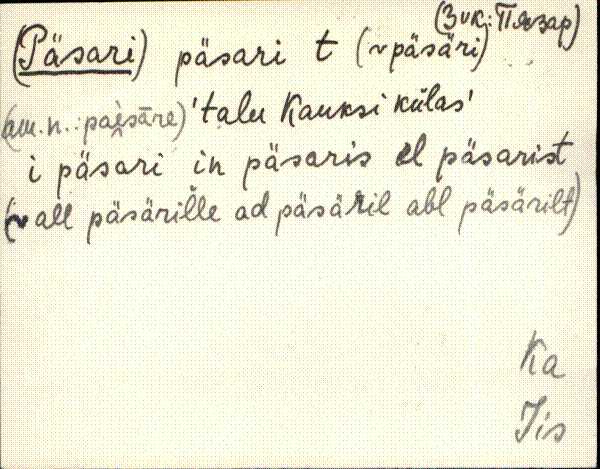 (Зик: Пязар)
(Päsari) päsari t (~päsäri)
(am. n.: paèsāre) 'talu Kauksi külas'
i päsari in päsaris el päsarist
(~ all päsärille ad päsäril abl päsärilt)
Ka
Iis